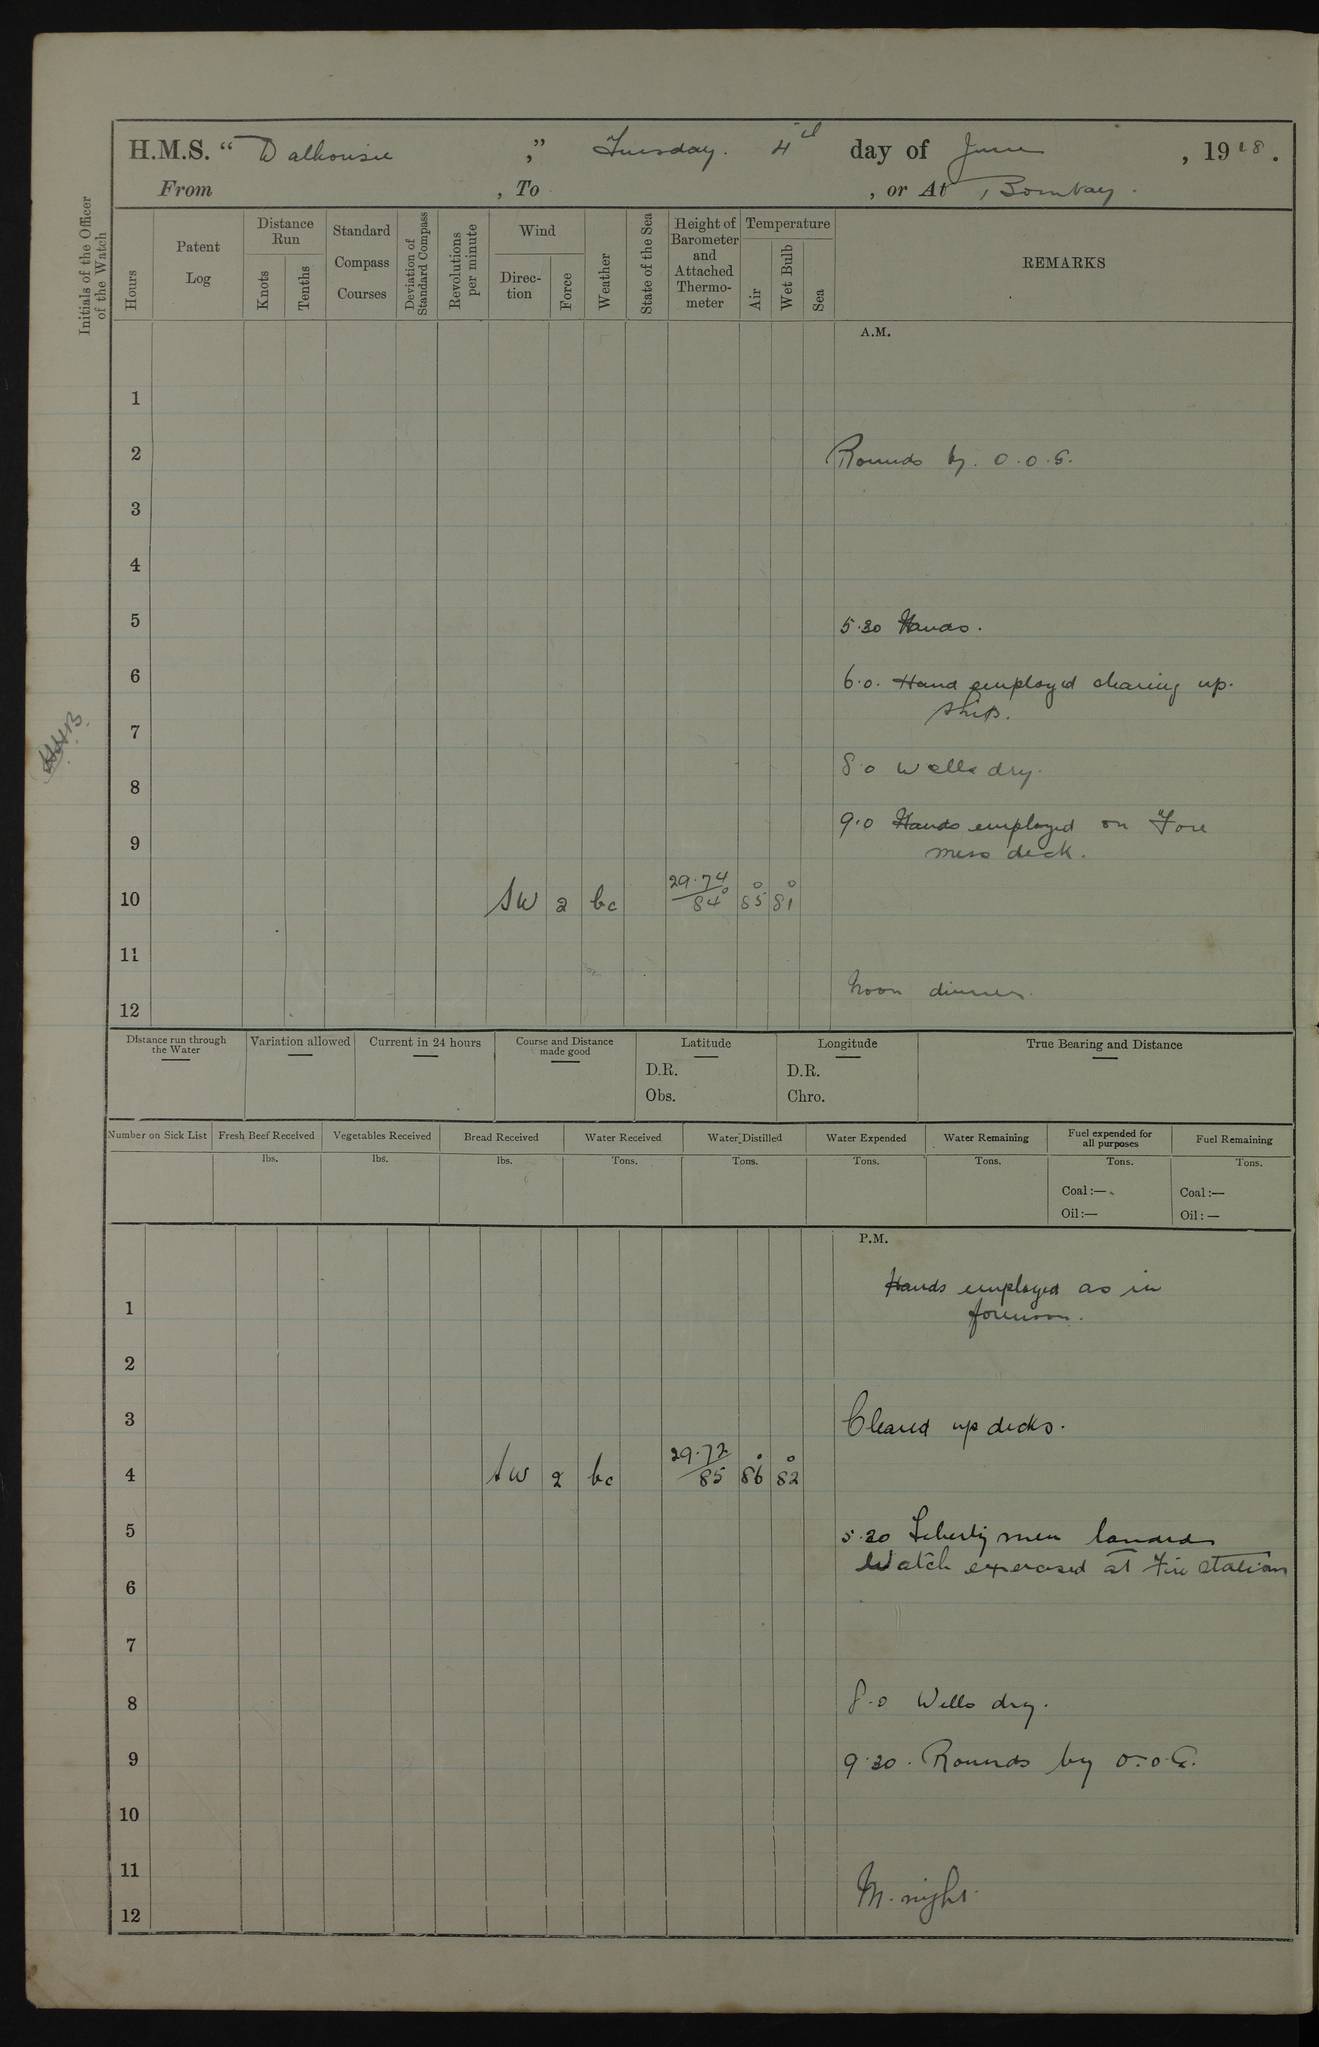 H.M.S. “ Dalhousie ,” Tuesday. 4th day of June , 1918.
From , To , or At Bombay.
Initials of the Officer of the Watch
Hours
Patent Log
Distance Run
Knots
Tenths
Standard Compass Courses
Deviation of Standard Compass
Revolutions per minute
Wind
Direc- tion
Force
Weather
State of the Sea
Height of Barometer and Attached Thermo- meter
Temperature
Air
Wet Bulb
Sea
REMARKS
A.M.
1
2 Rounds by. O.O.G.
3
4
5 5.30 Hands.
6 6.0. Hand employed cleaning up.
ship.
7
8.0 Wells dry.
8
9.0 Hands employed on Fore
9 mess deck.
10 SW 2 bc 29.74 84° 85° 81°
11
Noon dinner.
12
Distance run through the Water
Variation allowed
Current in 24 hours
Course and Distance made good
Latitude
D.R.
Obs.
Longitude
D.R.
Chro.
True Bearing and Distance
Number on Sick List
Fresh Beef Received
lbs.
Vegetables Received
lbs.
Bread Received
lbs.
Water Received
Tons.
Water Distilled
Tons.
Water Expended
Tons.
Water Remaining
Tons.
Fuel expended for all purposes
Tons.
Coal :—
Oil :—
Fuel Remaining
Tons.
Coal :—
Oil : —
P.M.
Hands employed as in
1 forenoon.
2
3 Cleared up decks.
4 SW 2 bc 29.72 85 86° 82°
5 5.30 Liberty men landed
Watch exercised at Fire Stations
6
7
8 8.0 Wells dry.
9 9.30. Rounds by O.O.G.
10
11
M.night.
12